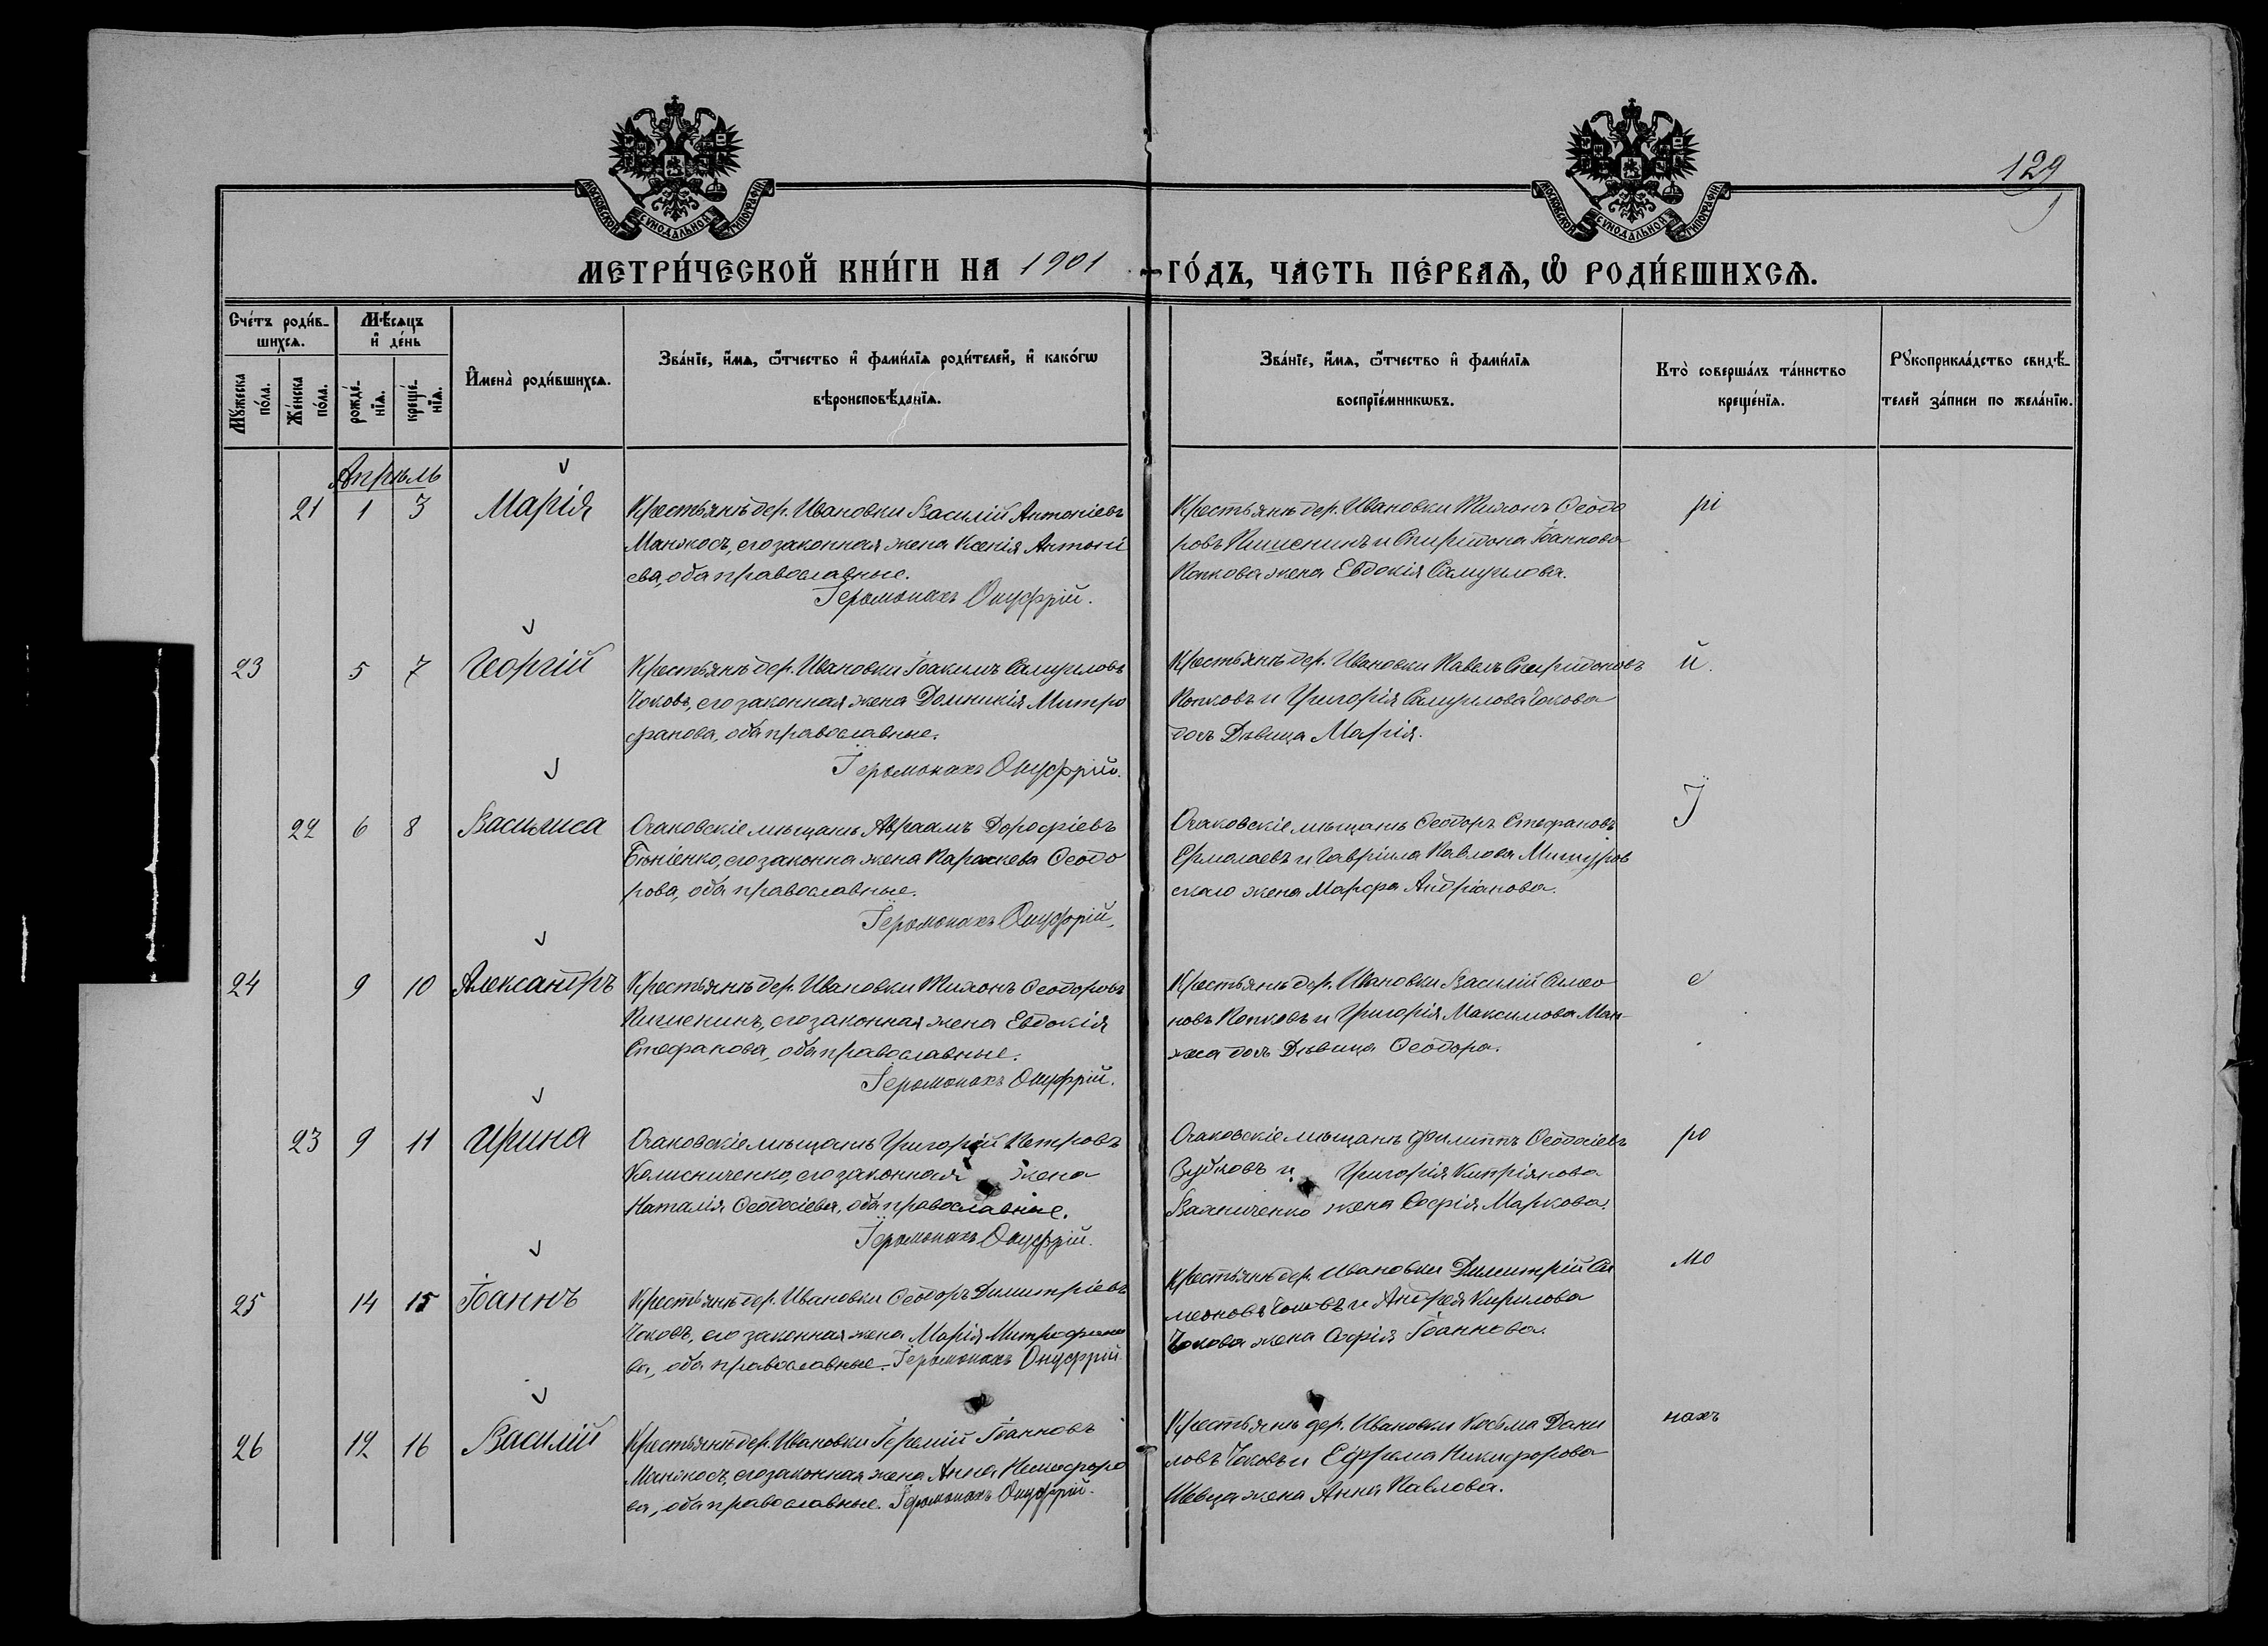 129
МОСКОВСКОЙ СѴНОДАЛЬНОЙ ТИПОГРАФІИ
МОСКОВСКОЙ СѴНОДАЛЬНОЙ ТИПОГРАФІИ
МЕТРИ́ЧЕСКОЙ КНИ́ГИ НА 1901 ГО́ДЪ, ЧА́СТЬ ПЕ́РВАѦ, Ѡ҆ РОДИ́ВШИХСѦ.
Сче́тъ роди́в-
шихсѧ.
Мꙋ́жеска
по́ла.
Же́нска
по́ла.
Мѣ́сѧцъ
и҆ де́нь
рожде́-
нїѧ.
креще́-
нїѧ.
И҆мена̀ роди́вшихсѧ.
Зва́нїе, и҆́мѧ, ѻ҆́тчество и҆ фами́лїѧ роди́телей, и҆ како́гѡ
вѣроисповѣ́данїѧ.
Зва́нїе, и҆́мѧ, ѻ҆́тчество и҆ фами́лїѧ
воспрїе́мникѡвъ.
Кто̀ соверша́лъ та́инство
креще́нїѧ.
Рꙋкоприкла́дство свидѣ́-
телей за́писи по жела́нїю.
Апрѣль
21 1 3 Марія
Крестьянѣ дер. Ивановки Василій Антоніевъ
Манжосъ, его законная жена Ксенія Антоні
ева, оба православные.
Іеромонахъ Онуфрій.
Крестьянѣ дер. Ивановки Тихонъ Ѳеодо
ровъ Кишенинъ и Спиридона Іоаннова
Копкова жена Евдокія Самуилова.
рі
23 5 7 Георгій
Крестьянѣ дер. Ивановки Іоакимъ Самуиловъ
Чоковъ, его законная жена Домникія Митро
фанова, оба православные.
Іеромонахъ Онуфрій.
Крестьянѣ дер. Ивановки Павелъ Спиридоновъ
Копковъ и Григорія Самуилова Чокова
дочь Дѣвица Марія.
й.
22 6 8 Василиса
Очаковскіе мѣщанѣ Авраамъ Дорофіевъ
его законна жена Параскева Ѳеодо
рова, оба православные.
Іеромонахъ Онуфрій.
Очаковскіе мѣщанѣ Ѳеодоръ Стефановъ
Ермолаевъ и Гавріила Павлова
скаго жена Марфа Андріанова.
І
24 9 10 Александръ
Крестьянѣ дер. Ивановки Тихонъ Ѳеодоровъ
Кишенинъ, его законная жена Евдокія
Стефанова, оба православные.
Іеромонахъ Онуфрій.
Крестьянѣ дер. Ивановки Василій Симео
новъ Копковъ и Григорія Максимова Ман-
жоса дочь Дѣвица Ѳеодора.
е
23 9 11 Ирина
Очаковскіе мѣщанѣ Григорій Петровъ
Колисниченко, его законная жена
Наталія Ѳеодосіева, оба православные.
Іеромонахъ Онуфрій.
Очаковскіе мѣщанѣ Филиппъ Ѳеодосіевъ
Зубковъ и Григорія Кипріянова
жена Софія Маркова.
ро
25 14 15 Іоаннъ
Крестьянѣ дер. Ивановки Ѳеодоръ Димитріевъ
Чоковъ, его законная жена Марія Митрофано
ва, оба православные. Іеромонахъ Онуфрій.
Крестьянѣ дер. Ивановки Димитрій Си
меоновъ Чоковъ и Андрея Кирилова
Чокова жена Софія Іоаннова.
мо
26 12 16 Василій
Крестьянѣ дер. Ивановки Іеремій Іоанновъ
Манжосъ, его законная жена Анна Никифоро
ва, оба православные. Іеромонахъ Онуфрій.
Крестьянѣ дер. Ивановки Косьма Дани
ловъ Чоковъ и Ефрема Никифорова
Шевца жена Анна Павлова.
нахъ